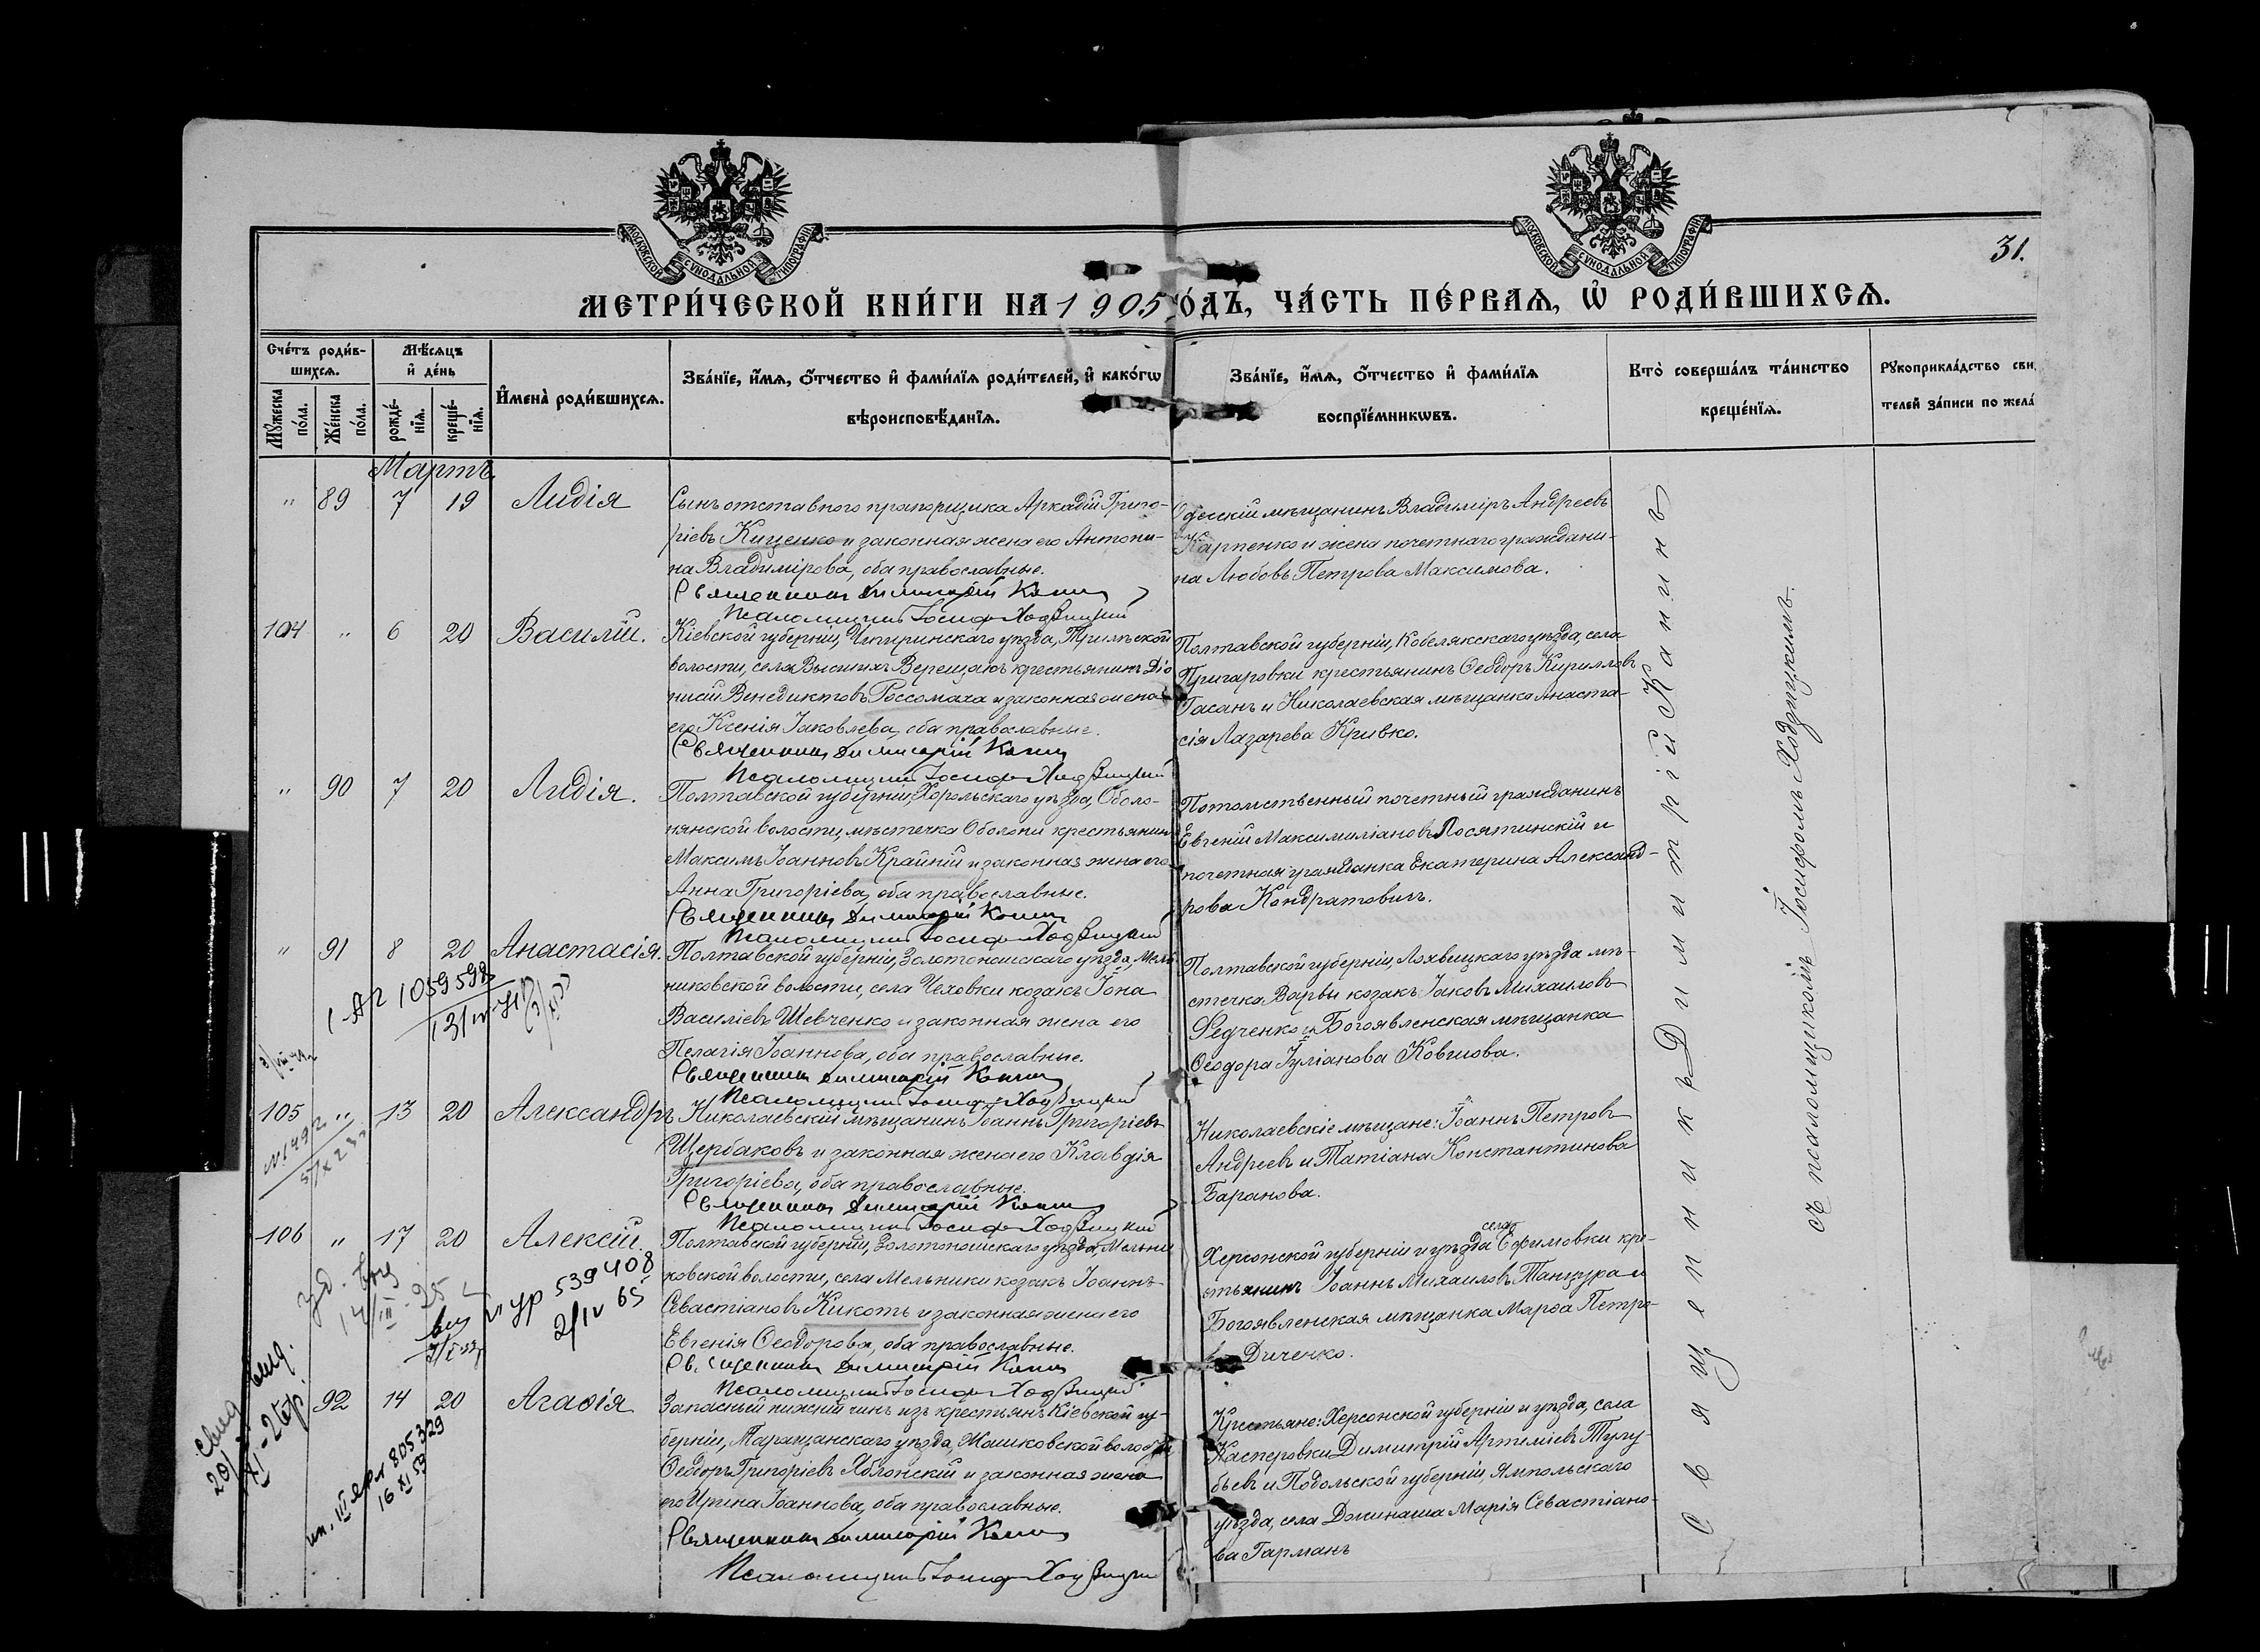 МОСКОВСКОЙ СУНОДАЛЬНОЙ ТИПОГРАФІИ
МОСКОВСКОЙ СУНОДАЛЬНОЙ ТИПОГРАФІИ
31.
МЕТРИ́ЧЕСКОЙ КНИ́ГИ НА 1905 ОДЪ, ЧА́СТЬ ПЕ́РВАѦ, Ѡ РОДИ́ВШИХСѦ.
Сче́тъ роди́в-
шихсѧ.
Мꙋ́жеска по́ла.
Же́нска по́ла.
Мѣ́сѧцъ
и де́нь
рожде́-
нїѧ.
креще́-
нїѧ.
Имена̀ роди́вшихсѧ.
Зва́нїе, и́мѧ, ѻ́тчество и фами́лїѧ роди́телей, и како́гѡ
вѣроисповѣ́данїѧ.
Зва́нїе, и́мѧ, ѻ́тчество и фами́лїѧ
воспрїе́мникѡвъ.
Кто̀ соверша́лъ та́инство
креще́нїѧ.
Рꙋкоприкла́дство сви
телей за́писи по жела́
Мартъ
" 89 7 19 Лидія
Сынъ отставного прапорщика Аркадій Григо-
ріевъ Кищенко и законная жена его Антони-
на Владимірова, оба православные.
Священникъ Димитрій Канинъ
Псаломщикъ Іосифъ Ходзицкій
Одесскій мѣщанинъ Владиміръ Андреевъ
Карпенко и жена почетнаго граждани-
на Любовь Петрова Максимова.
104 " 6 20 Василій.
Кіевской губерніи, Чигиринскаго уѣзда, Трилѣской
волости, села Высшихъ Верещакъ крестьянинъ Діо
нисій Венедиктовъ Россомаха и законная жена
его Ксенія Іаковлева, оба православные.
Священникъ Димитрій Канинъ
Псаломщикъ Іосифъ Ходзицкій
Полтавской губерніи, Кобелякскаго уѣзда, села
Пригаровки крестьянинъ Ѳеодоръ Кирилловъ
Гасанъ и Николаевская мѣщанка Анаста-
сія Лазарева Кривко.
" 90 7 20 Лидія.
Полтавской губерніи, Хорольскаго уѣзда, Оболо-
нянской волости, мѣстечка Оболони крестьянинъ
Максимъ Іоанновъ Крайній и законная жена его
Анна Григоріева, оба православные.
Священникъ Димитрій Канинъ
Псаломщикъ Іосифъ Ходзицкій
Потомственный почетный гражданинъ
Евгеній Максимиліановъ Лосятинскій и
почетная гражданка Екатерина Александ-
рова Кондратовичъ.
" 91 8 20 Анастасія.
Полтавской губерніи, Золотоношскаго уѣзда, Мель
никовской волости, села Чеховки козакъ Іона
Василіевъ Шевченко и законная жена его
Пелагія Іоаннова, оба православные.
Священникъ Димитрій Канинъ
Псаломщикъ Іосифъ Ходзицкій
Полтавской губерніи, Лохвицкаго уѣзда мѣ-
стечка Варвы козакъ Іаковъ Михаиловъ
Федченко и Богоявленская мѣщанка
Ѳеодора Іуліанова Ковшова.
105 " 13 20 Александръ
Николаевскій мѣщанинъ Іоаннъ Григоріевъ
Щербаковъ и законная жена его Клавдія
Григоріева, оба православные.
Священникъ Димитрій Канинъ
Псаломщикъ Іосифъ Ходзицкій
Николаевскіе мѣщане: Іоаннъ Петровъ
Андреевъ и Татіана Константинова
Баранова.
106 " 17 20 Алексій.
539408
2/IV 65
Полтавской губерніи, Золотоношскаго уѣзда, Мельни
ковской волости, села Мельники козакъ Іоаннъ
Севастіановъ Кикоть и законная жена его
Евгенія Ѳеодорова, оба православные.
Священникъ Димитрій Канинъ
Псаломщикъ Іосифъ Ходзицкій
Херсонской губерніи и уѣзда села Ефимовки кре-
стьянинъ Іоаннъ Михаиловъ Танцура и
Богоявленская мѣщанка Марѳа Петро-
ва Диченко.
92 14 20 Агаѳія
805329
16 XI 53
Запасный нижній чинъ изъ крестьянъ Кіевской гу-
берніи, Таращанскаго уѣзда, Жашковской волости
Ѳеодоръ Григоріевъ Яблонскій и законная жена
его Ирина Іоаннова, оба православные.
Священникъ Димитрій Канинъ
Псаломщикъ Іосифъ Ходзицкій
Крестьяне: Херсонской губерніи и уѣзда, села
Касперовки Димитрій Артеміевъ Тулу-
бьевъ и Подольской губерніи Ямпольскаго
уѣзда, села Дзмнаша Марія Севастіано-
ва Гарманъ
Священникъ Димитрій Канинъ
съ псаломщикомъ Іосифомъ Ходзицкимъ.